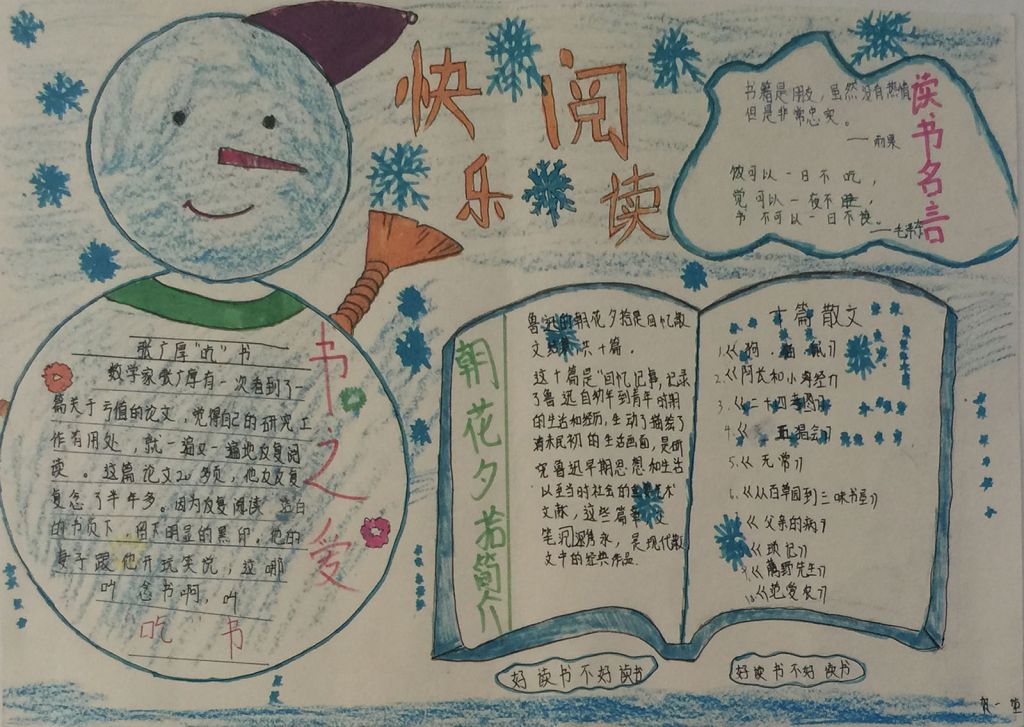 快乐阅读
读书名言
书籍是朋友，虽然没有热情
但是非常忠实。
——雨果
饭可以一日不吃，
觉可以一夜不睡，
书不可以一日不读。
——毛泽东
书之爱
张广厚"吃"书
数学家张广厚有一次看到了一
篇关于亏值的论文，觉得自己的研究工
作有用处，就一遍又一遍地反复阅
读。这篇论文20多页，他反反复
复念了半年多。因为反复阅读 洁白
的书页下，留下明显的黑印。他的
妻子跟他开玩笑说，这哪
叫念书啊，叫
吃书
朝花夕拾简介
鲁迅的朝花夕拾是回忆散
文 共十篇。
这十篇是"回忆记事，记录
了鲁迅自幼年到青年时期
的生活和经历，生动了描绘了
清末民初的生活画面，是研
究鲁迅早期思想和生活
以至当时社会的 术
文献，这些篇章 文
笔沉 隽永，是现代散
文中的经典作品。
十篇散文
1.《狗·猫·鼠》
2.《阿长和小海经》
3.《二十四孝图》
4.《五猖会》
5.《无常》
6.《从百草园到三味书屋》
7.《父亲的病》
《琐记》
9.《藤野先生》
10.《范爱农》
好读书不好读书
好读书不好读书